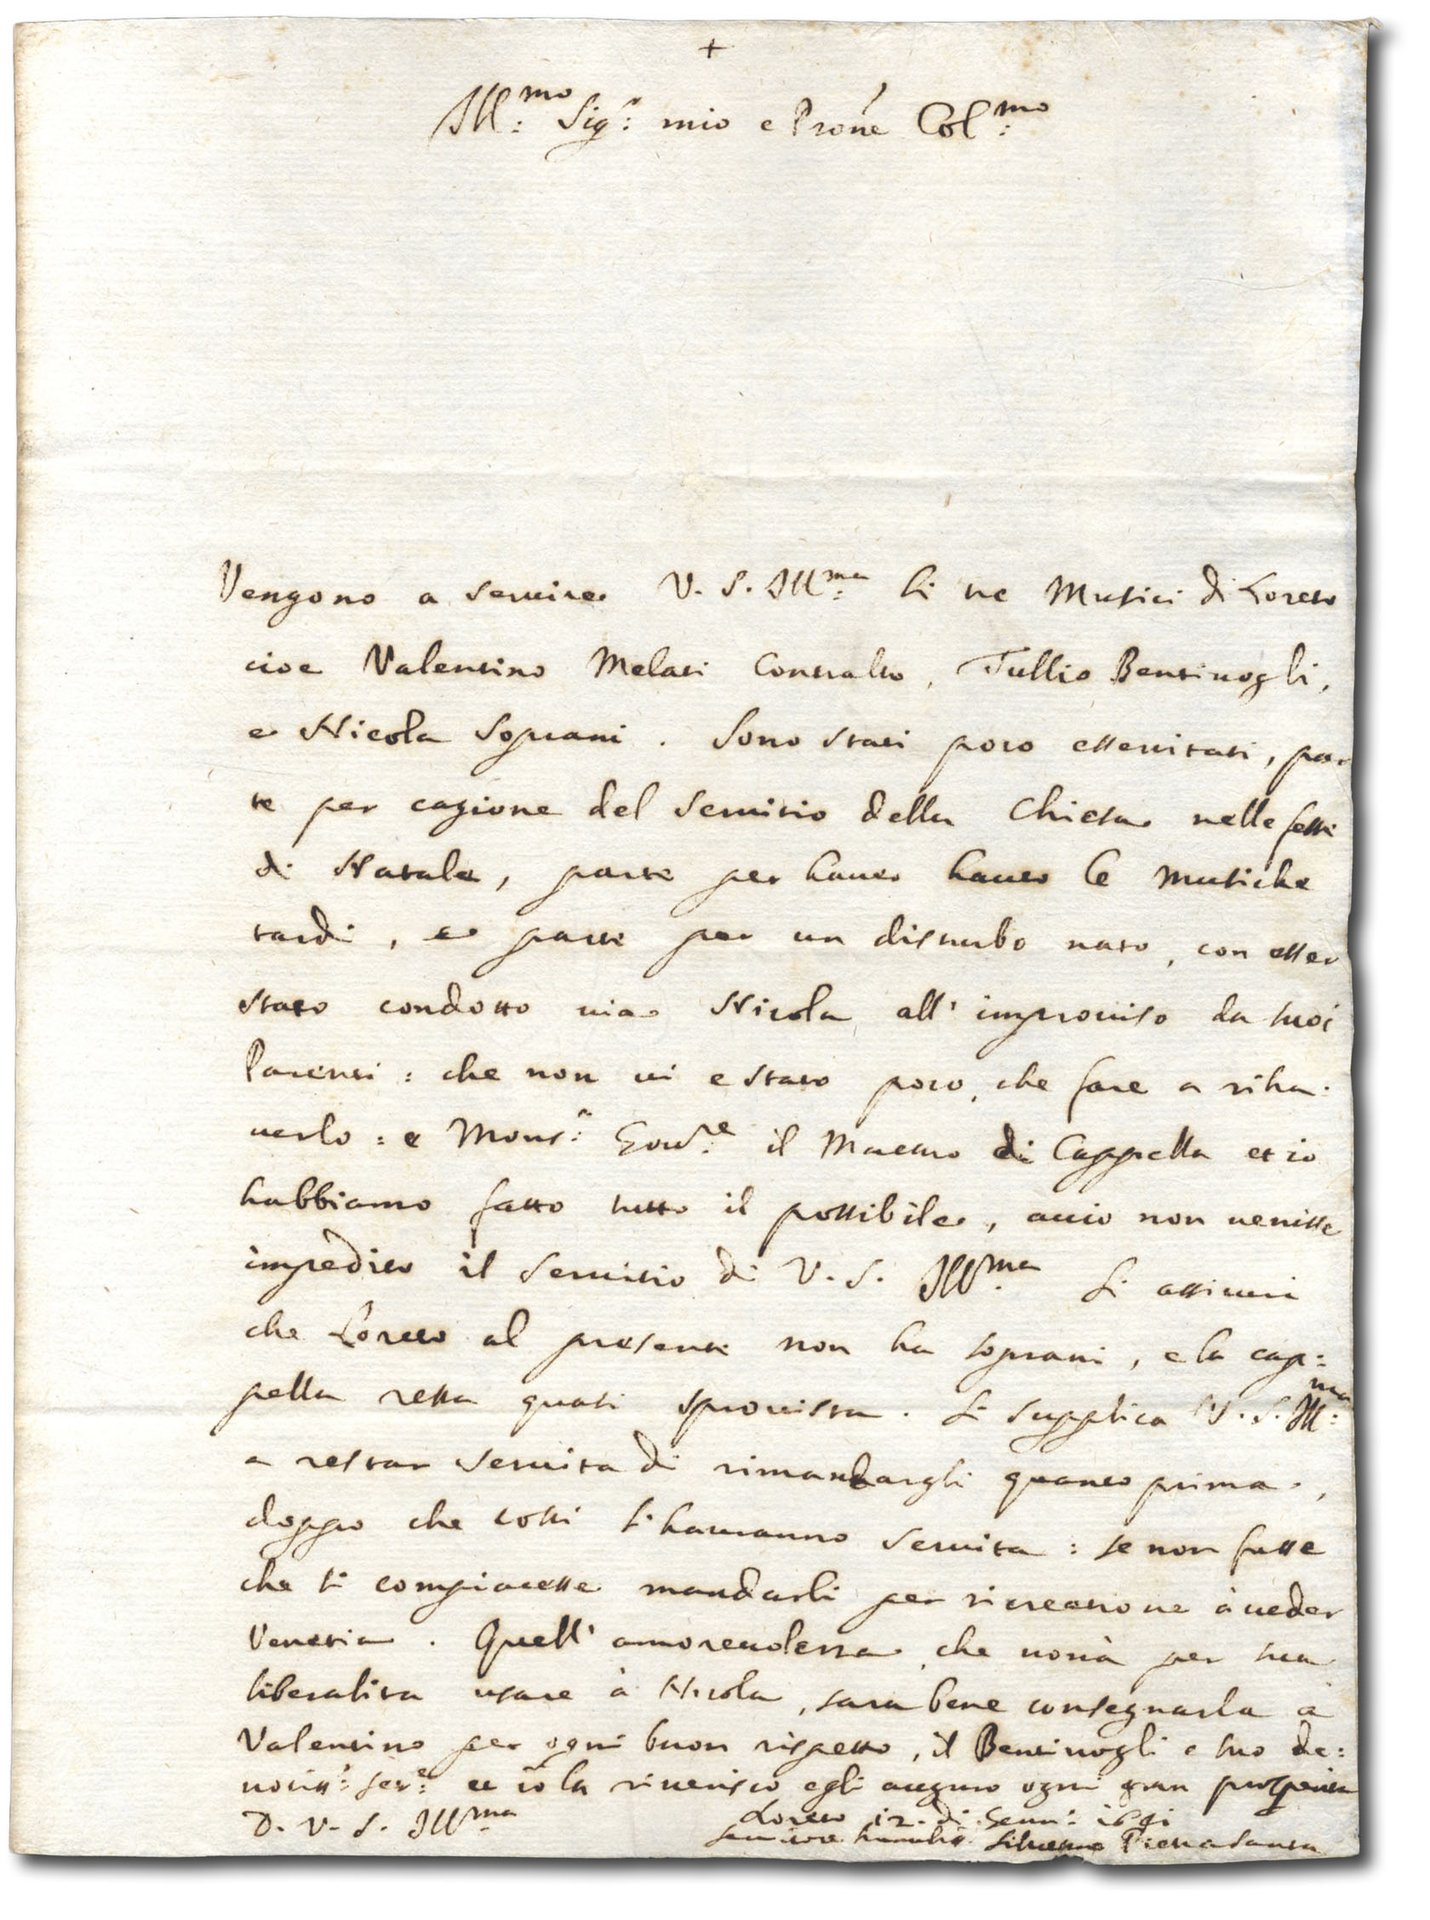 +
Ill:mo Sig:r mio e Prone Col:mo
Vengono a seruire V. S. Ill:ma li tre Musici di Loreto
cioe Valentino Melati Contralto, Tullio Bentiuogli,
e Nicola Soprani. Sono stati poco essercitati, par
te per cagione del seruitio della Chiesa nelle feste
di Natale, parte per hauer hauto le musiche
tardi, e parte per un disturbo nato, con esser
stato condotto uia Nicola all' improuiso da suoi
Parenti: che non ui e stato poco, che fare a riha-
uerlo: e Mons:r Gou:re il Maestro di Cappella et io
habbiamo fatto tutto il possibile, accio non uenisse
impedito il seruitio di V. S. Ill:ma Si assicuri
che Loreto al presente non ha soprani, e la cap=
pella resta quasi sprouista. Si supplica V. S. Ill:ma
a restar seruita di rimandargli quanto prima,
doppo che costi l'haueranno seruita: se non fusse
che si compiacesse mandarli per ricreatione à ueder
Venetia. Quell' amoreuolezza, che uorrà per sua
liberalita usare à Nicola, sara bene consegnarla à
Valentino per ogni buon rispetto, il Bentiuogli e suo de=
uotiss:o ser:e et io la riuerisco egli auguro ogni gran prosperita
D. V. S. Ill:ma Loreto 12. di Genn: 1641
seruitore humilis. Siluestro Pietrasanta